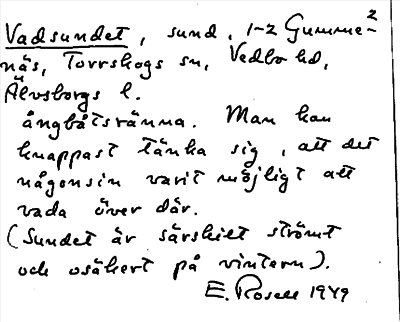 Vadsundet, sund, 1-2 Gumme-2
näs, Torrskogs sn, Vedbo hd,
Älvsborgs l.
ångbåtsränna. Man kan
knappast tänka sig, att det
någonsin varit möjligt att
vada över där.
(Sundet är särskilt strömt
och osäkert på vintern).
E. Rosell 1949